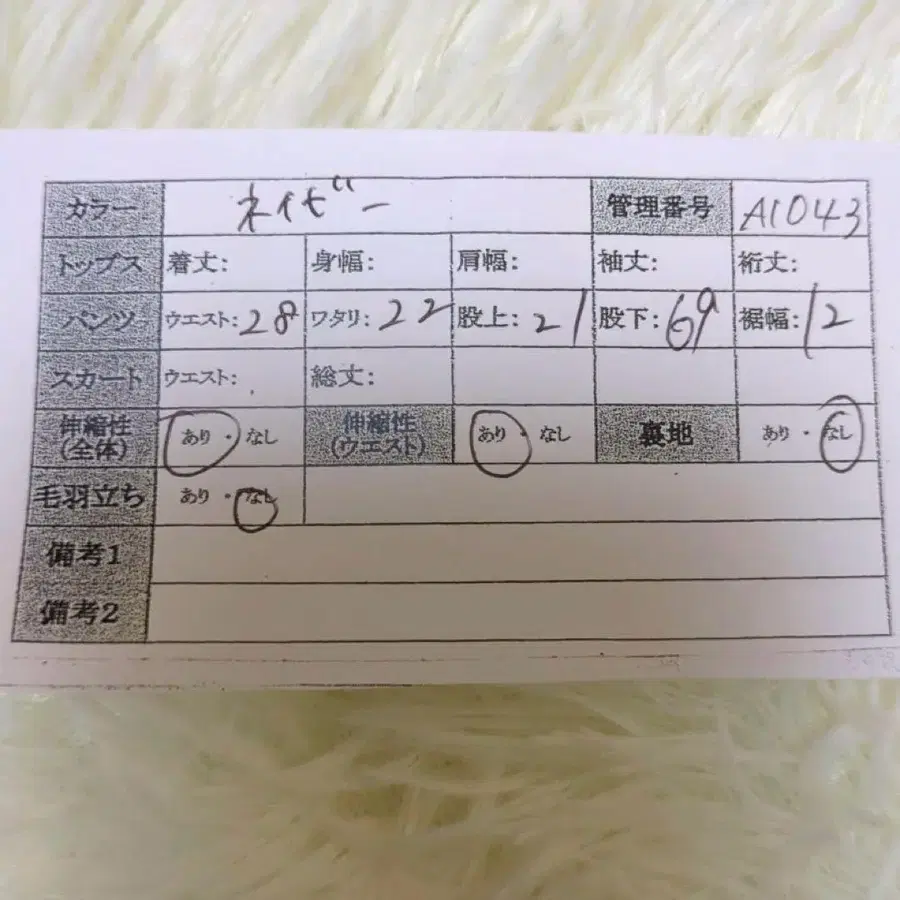 カラー ネイビー 管理番号 A1043
トップス 着丈: 身幅: 肩幅: 袖丈: 裄丈:
パンツ ウエスト: 28 ワタリ: 22 股上: 21 股下: 69 裾幅: 12
スカート ウエスト: 総丈:
伸縮性 (全体) あり・なし 伸縮性 (ウエスト) あり・なし 裏地 あり・なし
毛羽立ち あり・なし
備考1
備考2